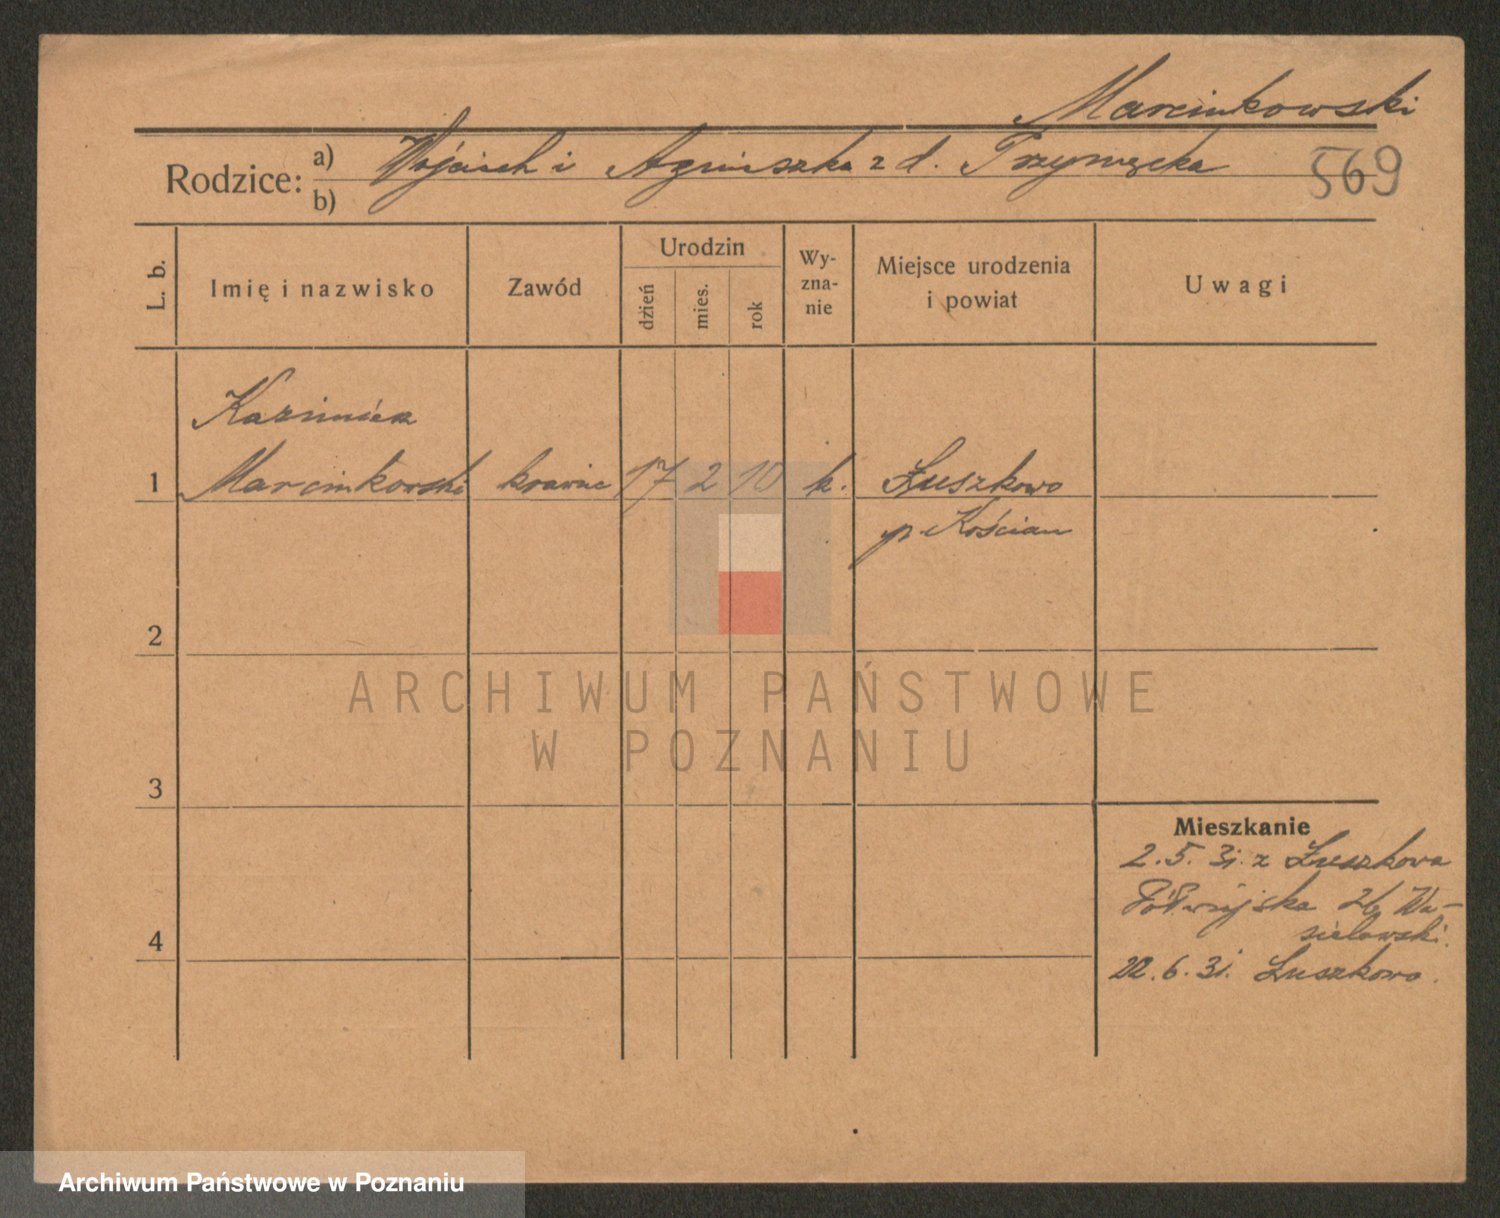 Marcinkowski
Rodzice: a) Wojciech i Agnieszka z d.
b)
569
L. b.
Imię i nazwisko
Zawód
Urodzin
dzień
mies.
rok
Wy-
zna-
nie
Miejsce urodzenia
i powiat
Uwagi
Kazimierz
1 Marcinkowski krawiec 17 2 10 k. Łuszkowo
p. Kościan
2
ARCHIWUM PAŃSTWOWE
W POZNANIU
3
Mieszkanie
2.5.31. z Łuszkowa
Półwiejska 26 Wa-
sielewski.
4
22.6.31. Łuszkowo.
Archiwum Państwowe w Poznaniu